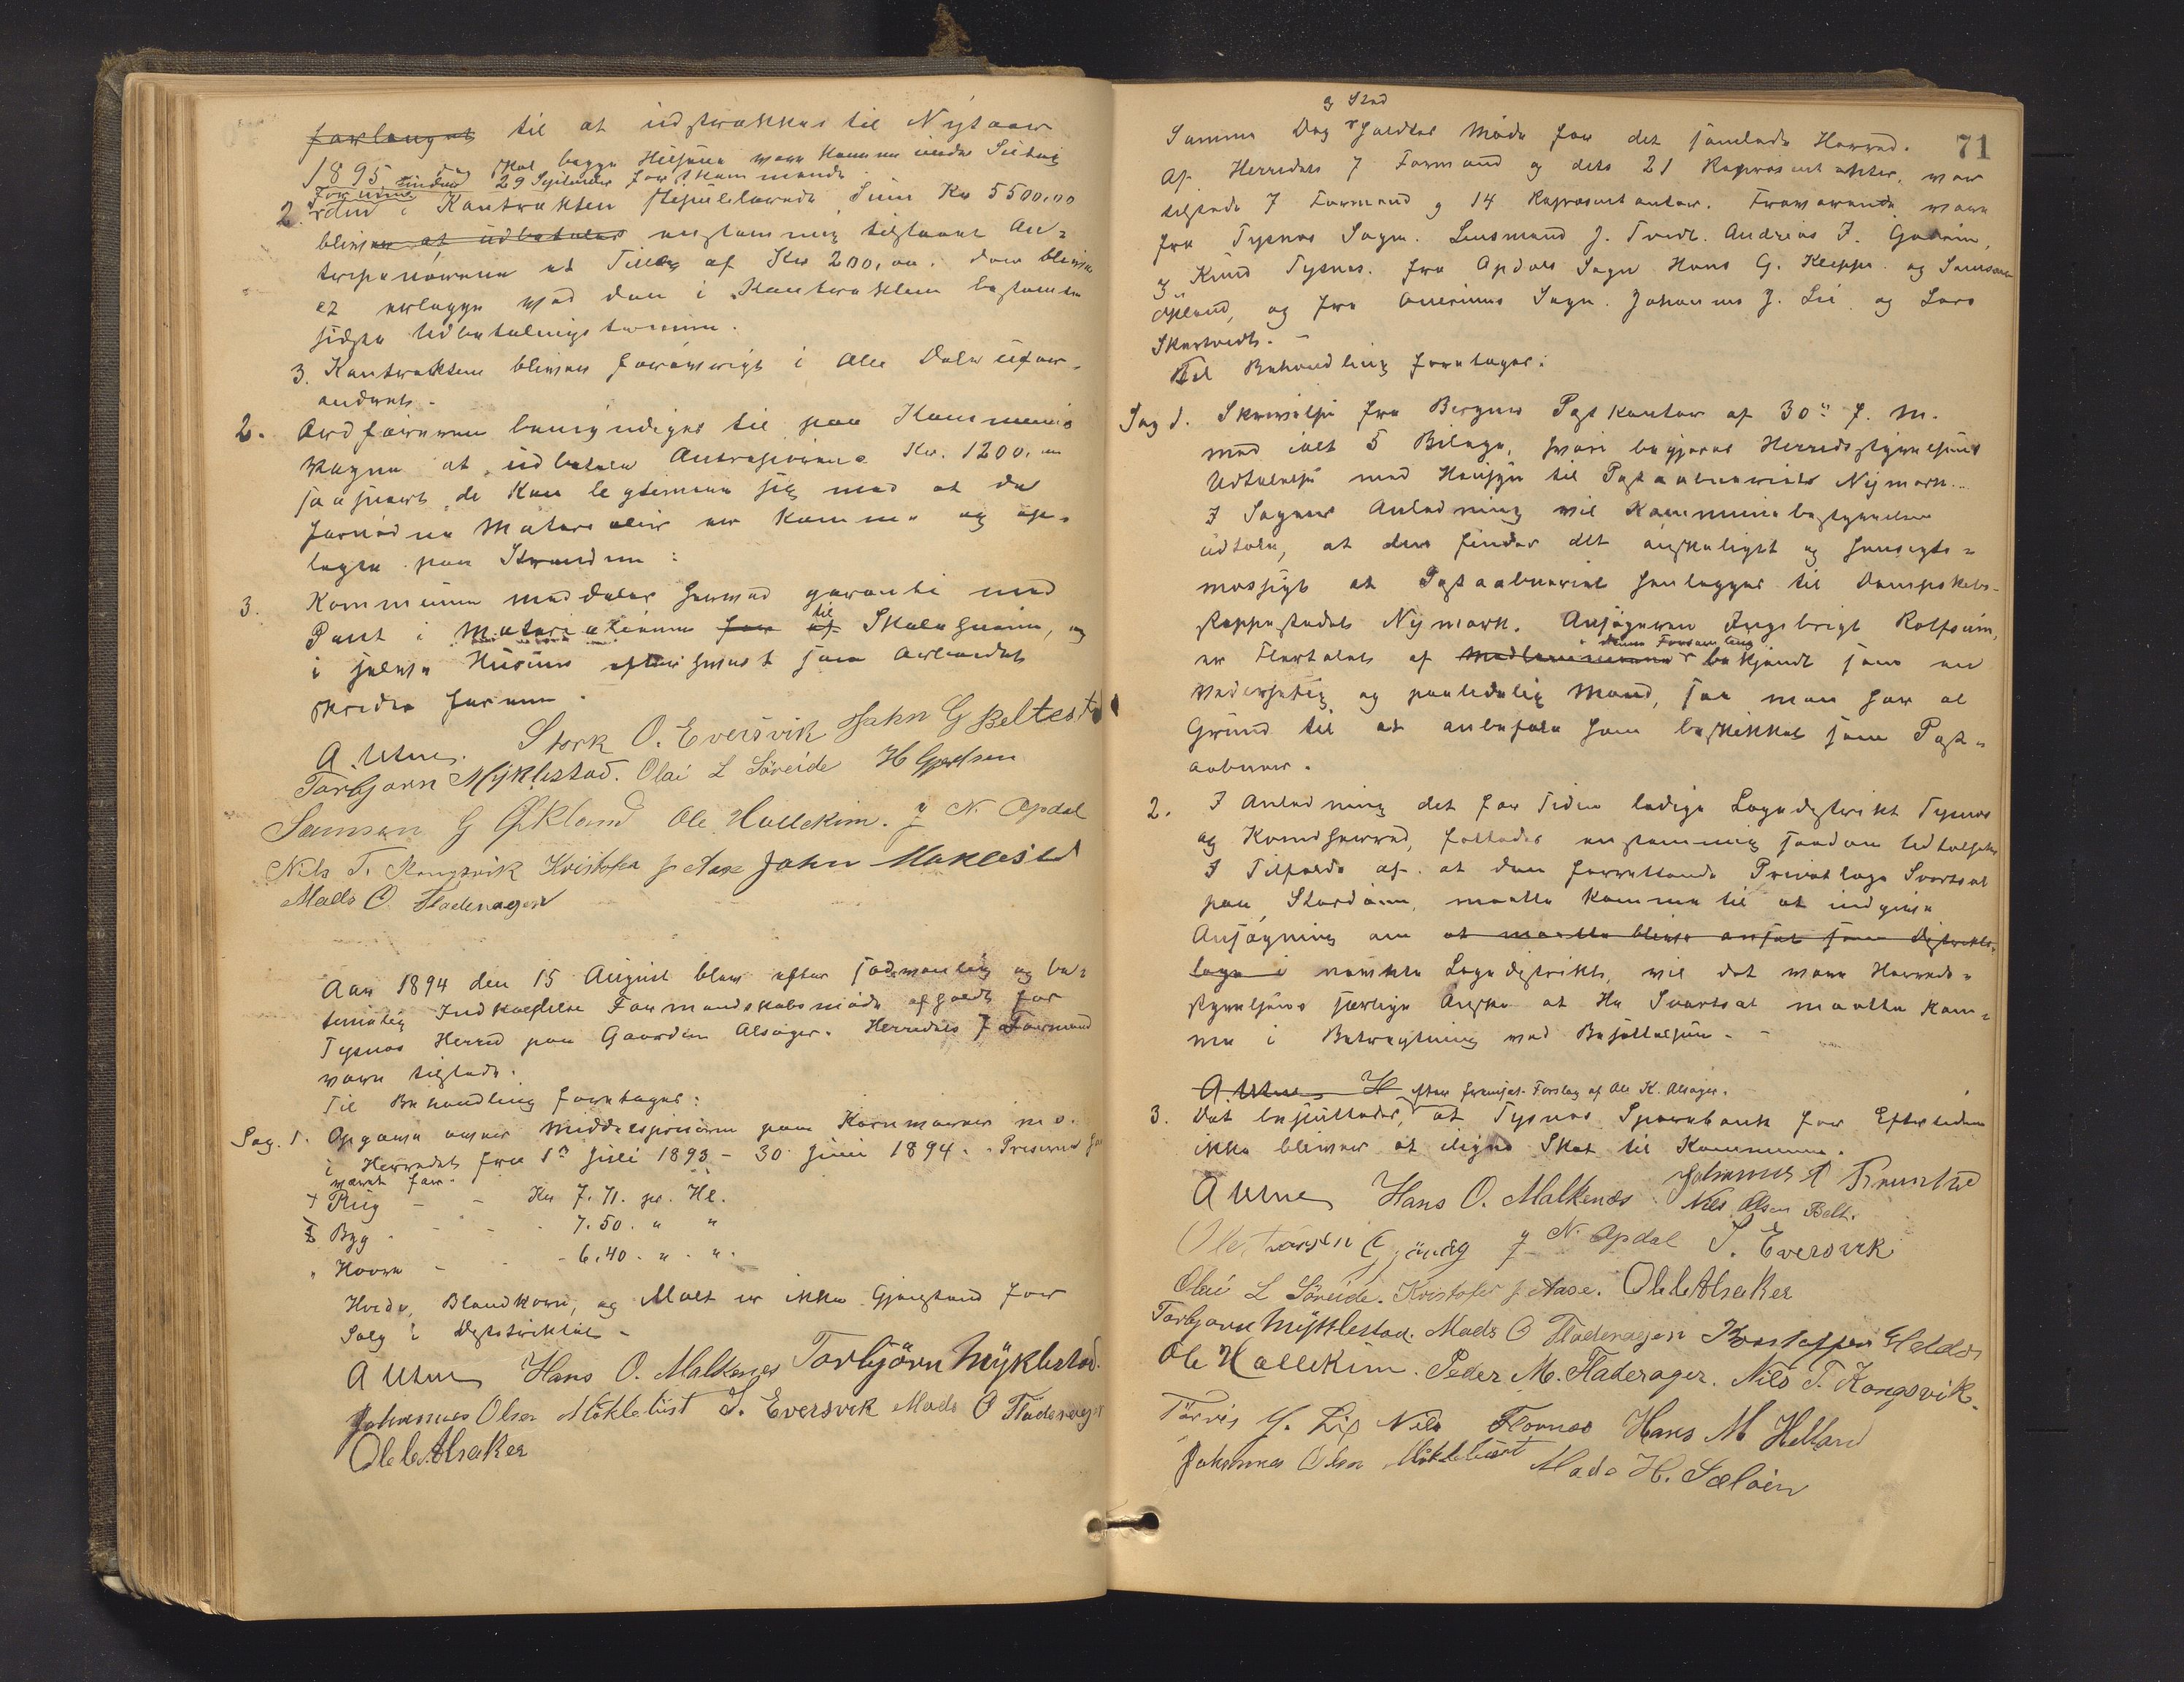 forlænget til at udstrækkes til Nytaar
1895, dog skal begge Husene være komne under Sutag
inden 29 September førstkommende
2. Foruden den i Kontrakten stipulerede Sum Kr 5500,00
bliver at udbetales enstemmig tilstaaet En-
treprenørerne et Tillæg af Kr 200,00. som bliver
at erlægge ved den i Kontrakten bestemte
sidste Udbetalingstermin.
3. Kontrakten bliver forøvrigt i alle Dele ufor-
andret.
2. Ordføreren bemyndiges til paa Kommunens
Vegne at udbetale Entreprenørerne Kr. 1200,00
saasnart de kan legitimere sig med at de
fornødne Materialier er komne og op-
lagte paa Stranden:
3. Kommunen meddeles herved garanti med
Pant i Materialierne for af til Skolehusene, og
i selve Husene efterhvert som Arbeidet
skrider fremm.
A. Utne. Stork O. Eversvik John G Beltestd
Torbjørn Myklestad. Olai L Søreide H Gjerdsen
Samson G Økland Ole Hallekim. J N. Opdal
Nils T. Kongsvik Kristofer J Aase John Maklestd
Mads O. Fladerager
Aar 1894 den 15 August blev efter sædvanlig og be-
timelig Indkaldelse Formandskabsmøde afholdt for
Tysnes Herred paa Gaarden Alsager. Herredets 7 Formænd
vare tilstede.
Til Behandling foretoges:
Sag. 1. Opgave over Middelspriserne paa Kornvarer m.v.
i Herredet fra 1ste Juli 1893 - 30 Juni 1894. Priserne har
været for.
Rug - - Kr 7.71. pr. Hl.
Byg - - 7.50. " "
Havre - - 6.40. " "
Hvede, Blandkorn, og Malt er ikke Gjenstand for
Salg i Distriktet -
A Utne Hans O. Malkenes Torbjörn Myklestad.
Johannes Olsen Møklebust S. Eversvik Mads O Fladerager
Ole C Alsaker
71
og Sted
Samme Dag holdtes Møde for det samlede Herred.
Af Herredets 7 Formænd og dets 21 Repræsentanter, var
tilstede 7 Formænd og 14 Repræsentanter. Fraværende vare
fra Tysnes Sogn. Lensmand J. Tvedt. Andreas J. Godøen,
og Knud Tysnes. fra Opdals Sogn Hans G. Kleppe og Samson
Økland, og fra Onerims Sogn. Johannes J. Lie og Lars
Skartvedt. -
Til Behandling foretoges:
Sag 1. Skrivelse fra Bergens Postkontor af 30te f. M.
med ialt 5 Bilage, hvori begjæres Herredsstyrelsens
Udtalelse med Hensyn til Postaabneriet Nymark.
I Sagens Anledning vil Kommunebestyrelsen
udtale, at den finder det ønskeligt og hensigts-
mæssigt at Postaabneriet henlægges til Dampskibs-
stoppestedet Nymark. Ansøgeren Ingebrigt Rolfsøen,
er Flertallet af Medlemmerne denne Forsamling bekjendt som en
vederheftig og paalidelig Mand, saa man har al
Grund til at anbefale ham beskikket som Post-
aabner.
2. I Anledning det for Tiden ledige Lægedistrikt Tysnes
og Kvindherred, fattedes enstemmig saadan Udtalelse
I Tilfælde af at den herværende Privatlæge Svartsal
paa Stordøen, maatte komme til at indgive
Ansøgning om at maatte blive ansat som Distrikts-
læge i nævnte Lægedistrikt, vil det være Herreds-
styrelsens særlige Ønske at Hr Svartsal maatte kom-
me i Betragtning ved Besættelsen. -
A. Utne H efter fremsat Forslag af Ole K. Alsager.
3. Det besluttedes, at Tysnes Sparebank for Eftertiden
ikke bliver at iligne Skat til Kommunen.
A Utne Hans O. Malkenes Johannes A
Nils Olsen Belt.
Ole Larsen Gjøvåg J N. Opdal S. Eversvik
Olai L Søreide. Kristofer J Aase. Ole C Alsaker
Torbjørn Myklestad. Mads O Fladeragen Kristoffer Heldal
Ole Hallekim. Peder M. Fladerager. Nils T. Kongsvik.
J. Lie Nils Flornes Hans M Helland
Johannes Olsen Møklebust Mads H. Sæløen